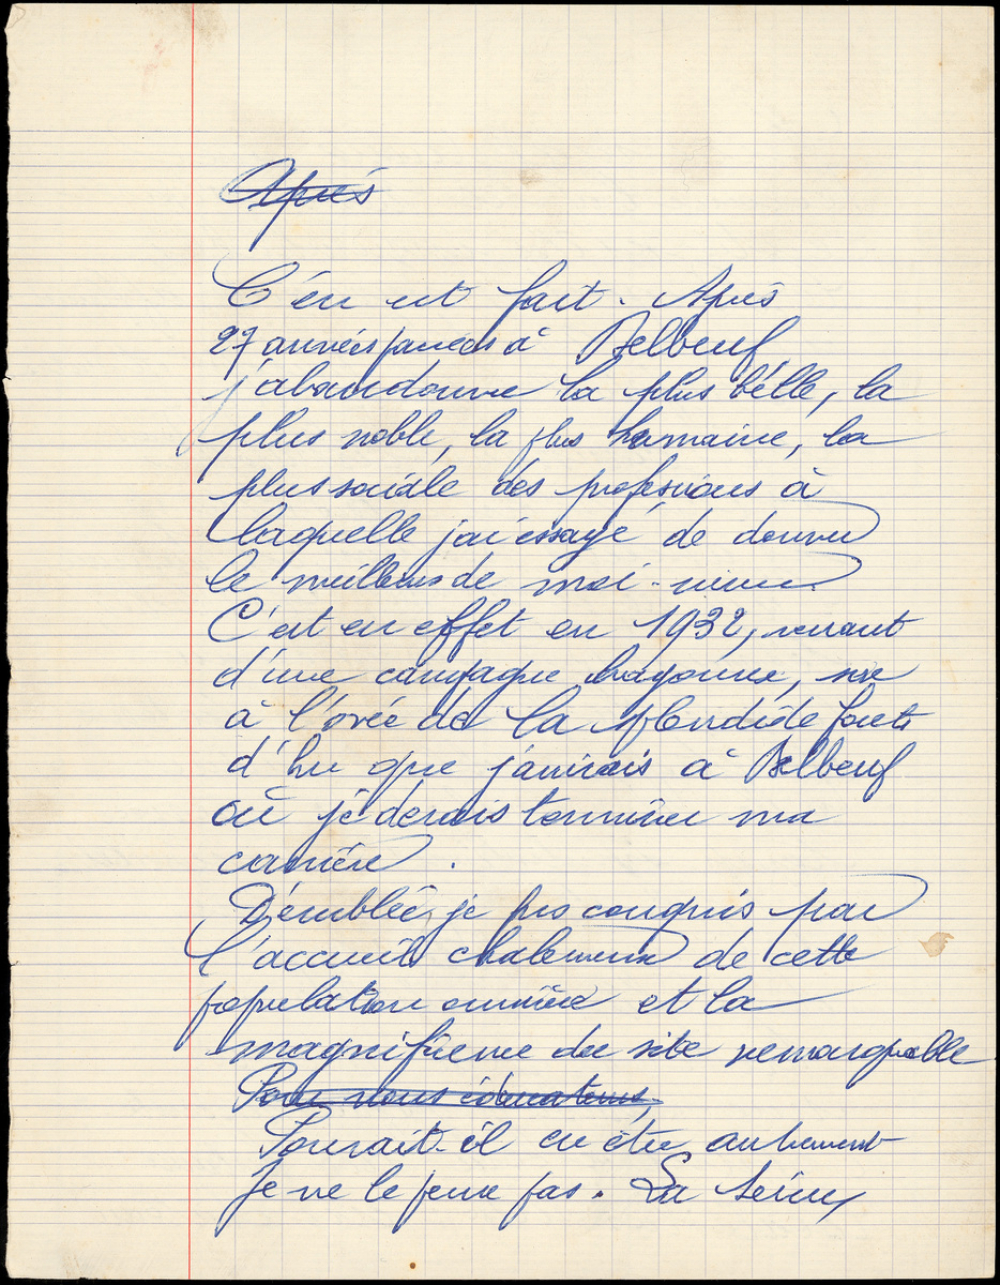 Après
C'en est fait. Après
27 années passées à Belbeuf
j'abandonne la plus belle, la
plus noble, la plus humaine, la
plus sociale des professions à
laquelle j'ai essayé de donner
le meilleur de moi-même.
C'est en effet en 1932, venant
d'une campagne brayonne, sise
à l'orée de la splendide forêt
d'Eu que j'arrivais à Belbeuf
où je devais terminer ma
carrière.
D'emblée, je fus conquis par
l'accueil chaleureux de cette
population ouvrière et la
magnificence du site remarquable
Pour nous éducateurs,
Pouvait-il en être autrement
Je ne le pense pas. La Seine,